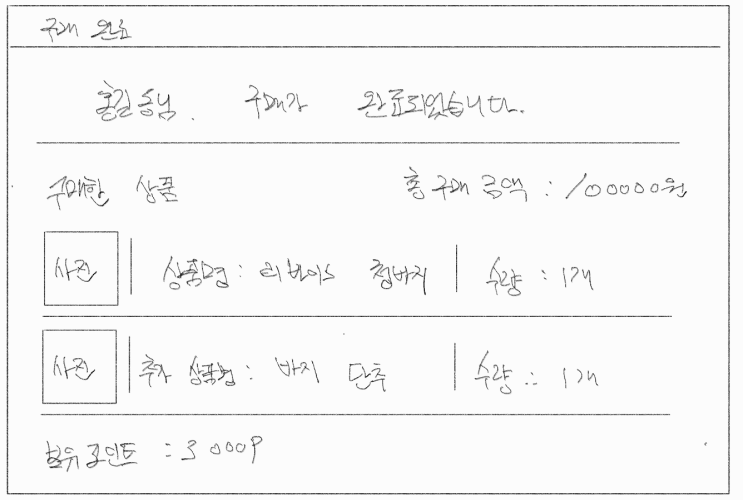 구매 완료
홍길동님. 구매가 완료되었습니다.
구매한 상품 총 구매 금액 : 100000원
사진 상품명 : 리바이스 청바지 수량 : 1개
사진 추가 상품명 : 바지 단추 수량 : 1개
보유 포인트 : 3000P